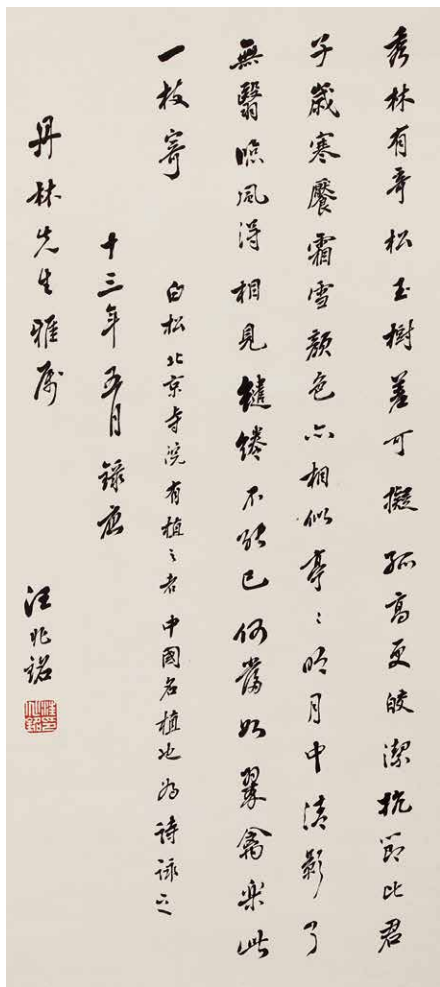 秀林有奇松玉樹差可擬孤高更皎潔抗節比君
子歲寒饜霜雪顏色亦相似亭〻明月中清影了
無翳臨風得相見繾綣不能已何當如翠禽樂此
一枝寄
白松北京寺院有植之者中國名植也為詩詠之
十三年五月錄應
丹林先生雅屬
汪兆銘
汪印兆銘